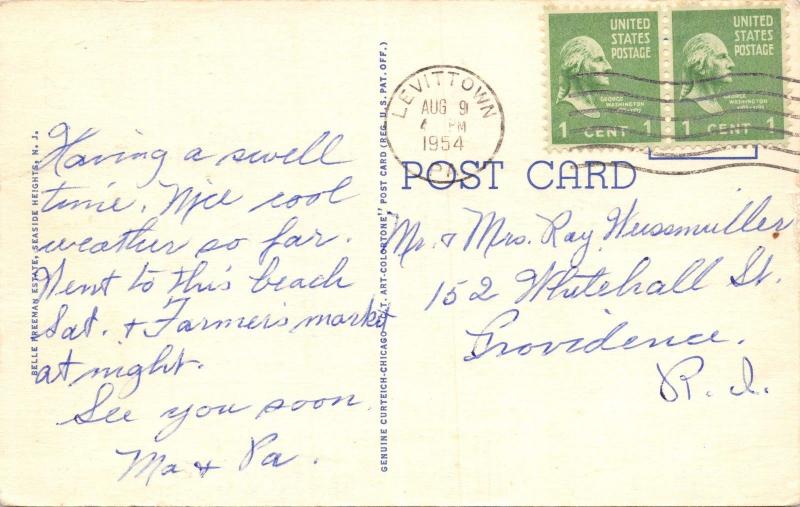 BELLE FREEMAN ESTATE, SEASIDE HEIGHTS, N. J.
Having a swell
time. Nice cool
weather so far.
Went to this beach
Sat. & Farmer's market
at night.
See you soon.
Ma & Pa.
GENUINE CURTEICH-CHICAGO "C.T. ART-COLORTONE" POST CARD (REG. U.S. PAT. OFF.)
LEVITTOWN
AUG 9
4 PM
1954
PA.
UNITED
STATES
POSTAGE
GEORGE
WASHINGTON
1 CENT 1
UNITED
STATES
POSTAGE
GEORGE
WASHINGTON
1 CENT 1
POST CARD
Mr. & Mrs. Ray Weissmuller
152 Whitehall St.
Providence.
R. I.